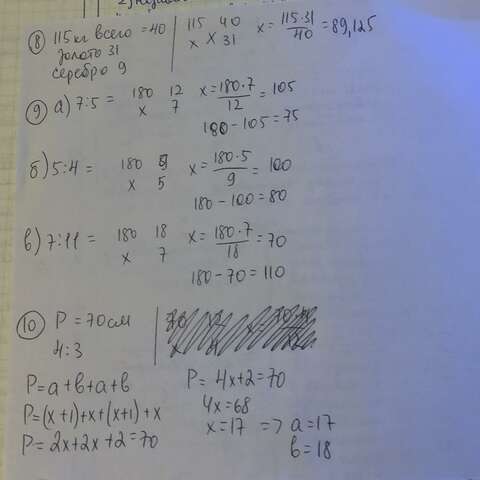 8) 115 кг всего = 40 | 115 40 x = 115·31/40 = 89,125
золото 31 | x x 31
серебро 9
9) а) 7:5 = 180 12 x = 180·7/12 = 105
x 7
180 - 105 = 75
б) 5:4 = 180 9 x = 180·5/9 = 100
x 5
180 - 100 = 80
в) 7:11 = 180 18 x = 180·7/18 = 70
x 7
180 - 70 = 110
10) P = 70 см
4:3
P = a + b + a + b
P = (x + 1) + x + (x + 1) + x
P = 2x + 2x + 2 = 70
P = 4x + 2 = 70
4x = 68
x = 17 => a = 17
b = 18